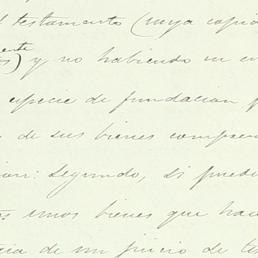 testamento (cuya copia
ente
) y no habiendo en
especie de fundacion
de sus bienes compren
ion: Segundo, si puede
unos bienes que hac
cia de un juicio de tes